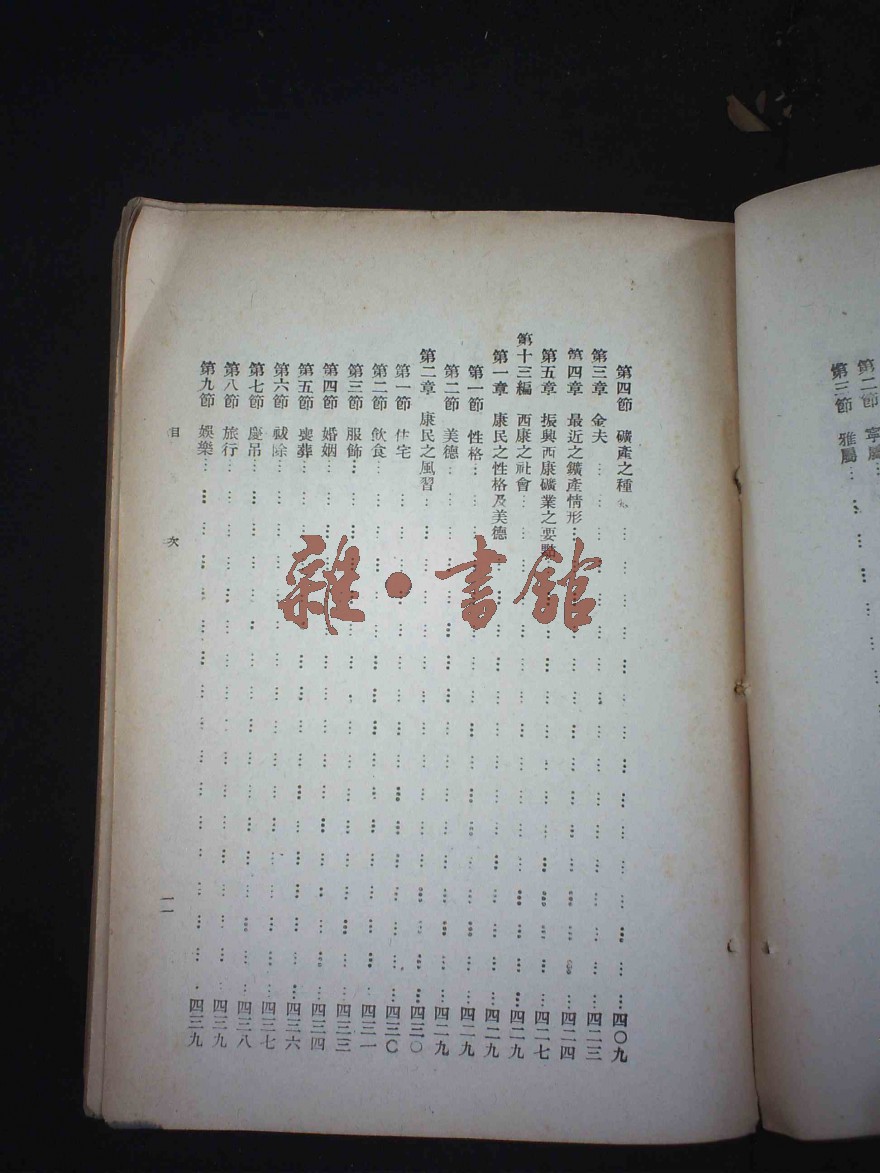 第二節 寧屬
第三節 雅屬
第四節 礦產之種 四〇九
第三章 金夫 四一三
第四章 最近之鑛產情形 四一四
第五章 振興西康礦業之要點 四一七
第十三編 西康之社會 四二九
第一章 康民之性格及美德 四二九
第一節 性格 四二九
第二節 美德 四二九
第二章 康民之風習 四三〇
第一節 住宅 四三〇
第二節 飲食 四三一
第三節 服飾 四三三
第四節 婚姻 四三四
第五節 喪葬 四三六
第六節 祓除 四三七
第七節 慶吊 四三八
第八節 旅行 四三九
第九節 娛樂 四三九
目 次
一一
雜·書館